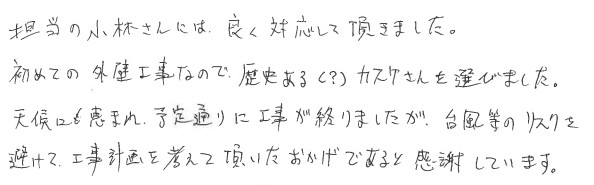 担当の小林さんには、良く対応して頂きました。
初めての外壁工事なので、歴史ある(?)カスケさんを選びました。
天候にも恵まれ、予定通りに工事が終りましたが、台風等のリスクを
避けて、工事計画を考えて頂いたおかげであると感謝しています。